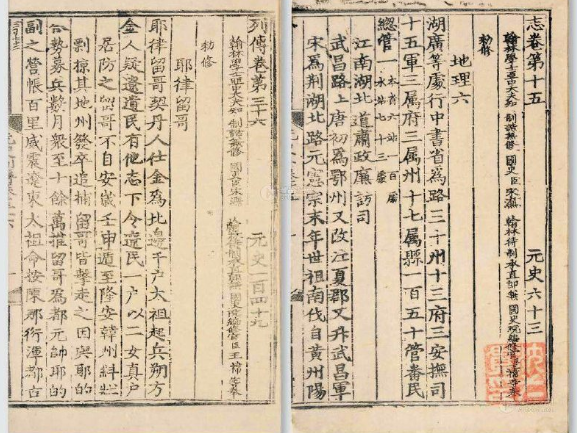 志卷第十五
元史六十三
翰林學士亞中大夫知 制誥兼修 國史臣宋濂 翰林待制承直郎兼 國史院編修官臣王禕等奉
勅修
地理六
湖廣等處行中書省爲路三十州十三府三安撫司
十五軍三属府三属州十七属縣一百五十管番民
總管一
江南湖北道肅政廉訪司
武昌路上唐初爲鄂州又改江夏郡又升武昌軍
宋爲荆湖北路元憲宗末年世祖南伐自黄州陽
列傳卷第三十六
元史一百四十九
翰林學士亞中大夫知 制誥兼修 國史臣宋濂 國史院編修官臣王禕等奉
勅修
耶律留哥
耶律留哥契丹人仕金爲北邊千户太祖起兵朔方
金人疑遼遺民有他志下令遼民一户以二女真户
居防之留哥不自安歲壬申遁至隆安韓州糾壯
剽掠其地州發卒追捕留哥皆擊走之因與耶的
合勢募兵數月衆至十餘萬推留哥爲都元帥耶的
副之營帳百里威震遼東太祖命按陳那衍渾都古